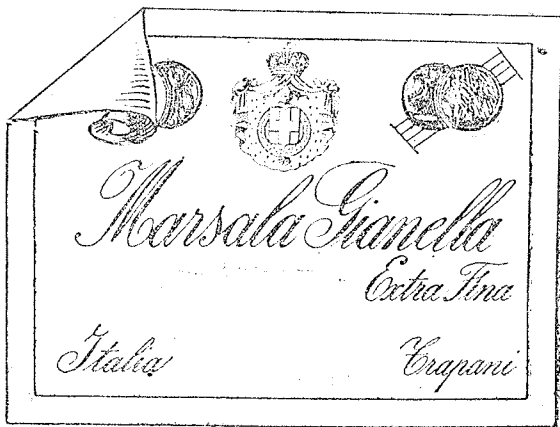 Marsala Gianella
Extra Fina
Italia Trapani